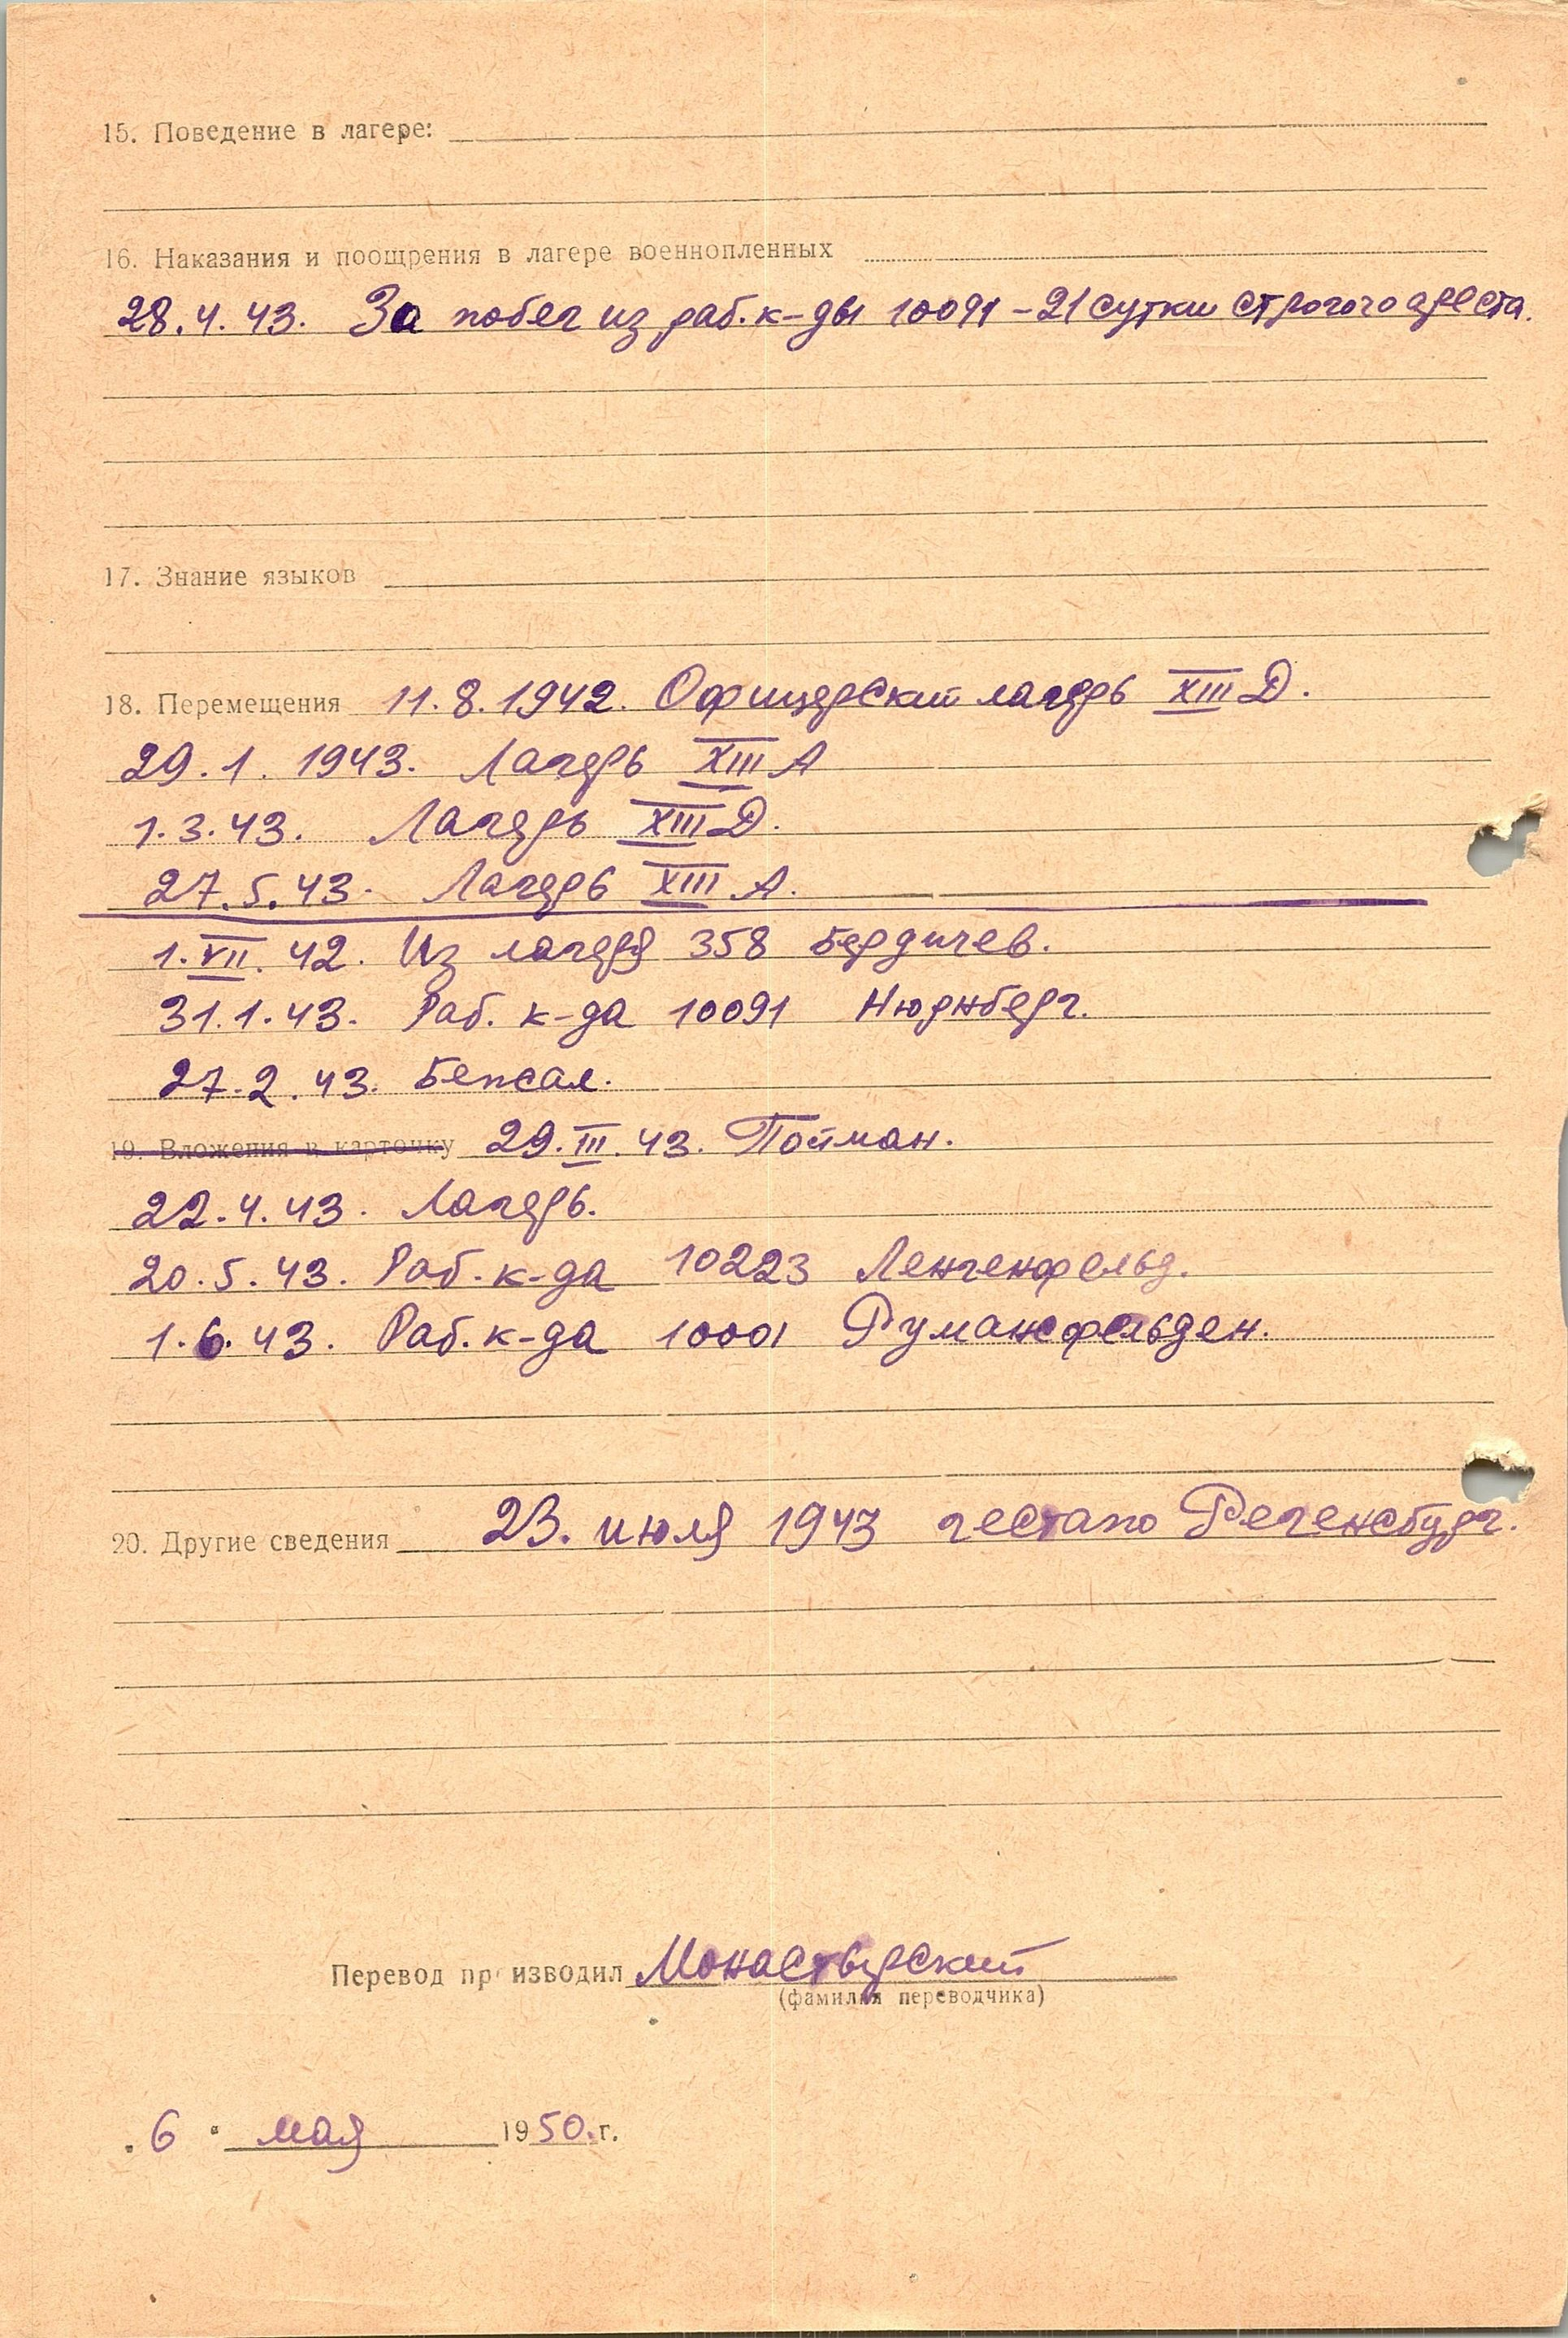 15. Поведение в лагере:
16. Наказания и поощрения в лагере военнопленных
28.4.43. За побег из раб. к-ды 10091 - 21 сутки строгого ареста.
17. Знание языков
18. Перемещения 11.8.1942. Офицерский лагерь XIII D.
29.1.1943. Лагерь XIII A
1.3.43. Лагерь XIII D.
27.5.43. Лагерь XIII A.
1.VII.42. Из лагеря 358 Бердичев.
31.1.43. Раб. к-да 10091 Нюрнберг.
27.2.43. Бежал.
19. Вложения в карточку 29.III.43. Пойман.
22.4.43. Лагерь.
20.5.43. Раб. к-да 10223 Ленгенфельд.
1.6.43. Раб. к-да 10001 Румансфельден.
20. Другие сведения 23. июля 1943 гестапо Регенсбург.
Перевод производил Монастырский
(фамилия переводчика)
"6" мая 1950. г.